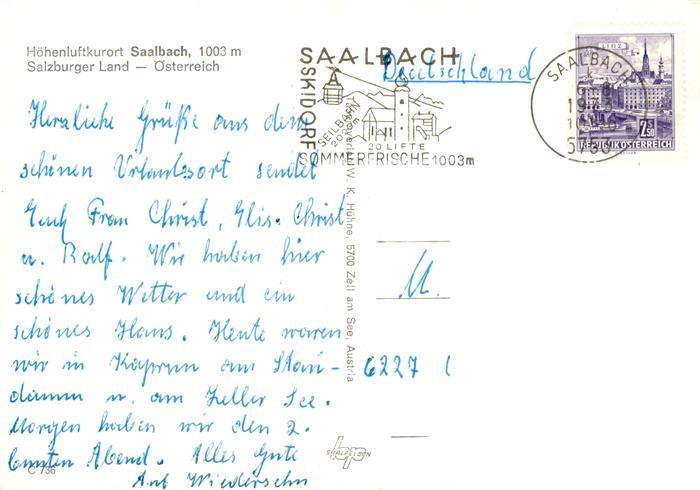 Höhenluftkurort Saalbach, 1003 m
Salzburger Land — Österreich
Herzliche Grüße aus dem
schönen Urlaubsort sendet
Euch Frau Christ, Elis. Christ
u. Ralf. Wir haben hier
schönes Wetter und ein
schönes Haus. Heute waren
wir in Kaprun am Stau-
damm u. am Zeller See.
Morgen haben wir den 2.
bunten Abend. Alles Gute
Auf Wiedersehn
C 736
SAALBACH
SKIDORF
SEILBAHN
20 LIFTE
SOMMERFRISCHE 1003m
Deutschland
SAALBACH
5753
2.50
REPUBLIK ÖSTERREICH
LINZ
W. K. Höhne, 5700 Zell am See, Austria
U.
6227
SAALFELDEN